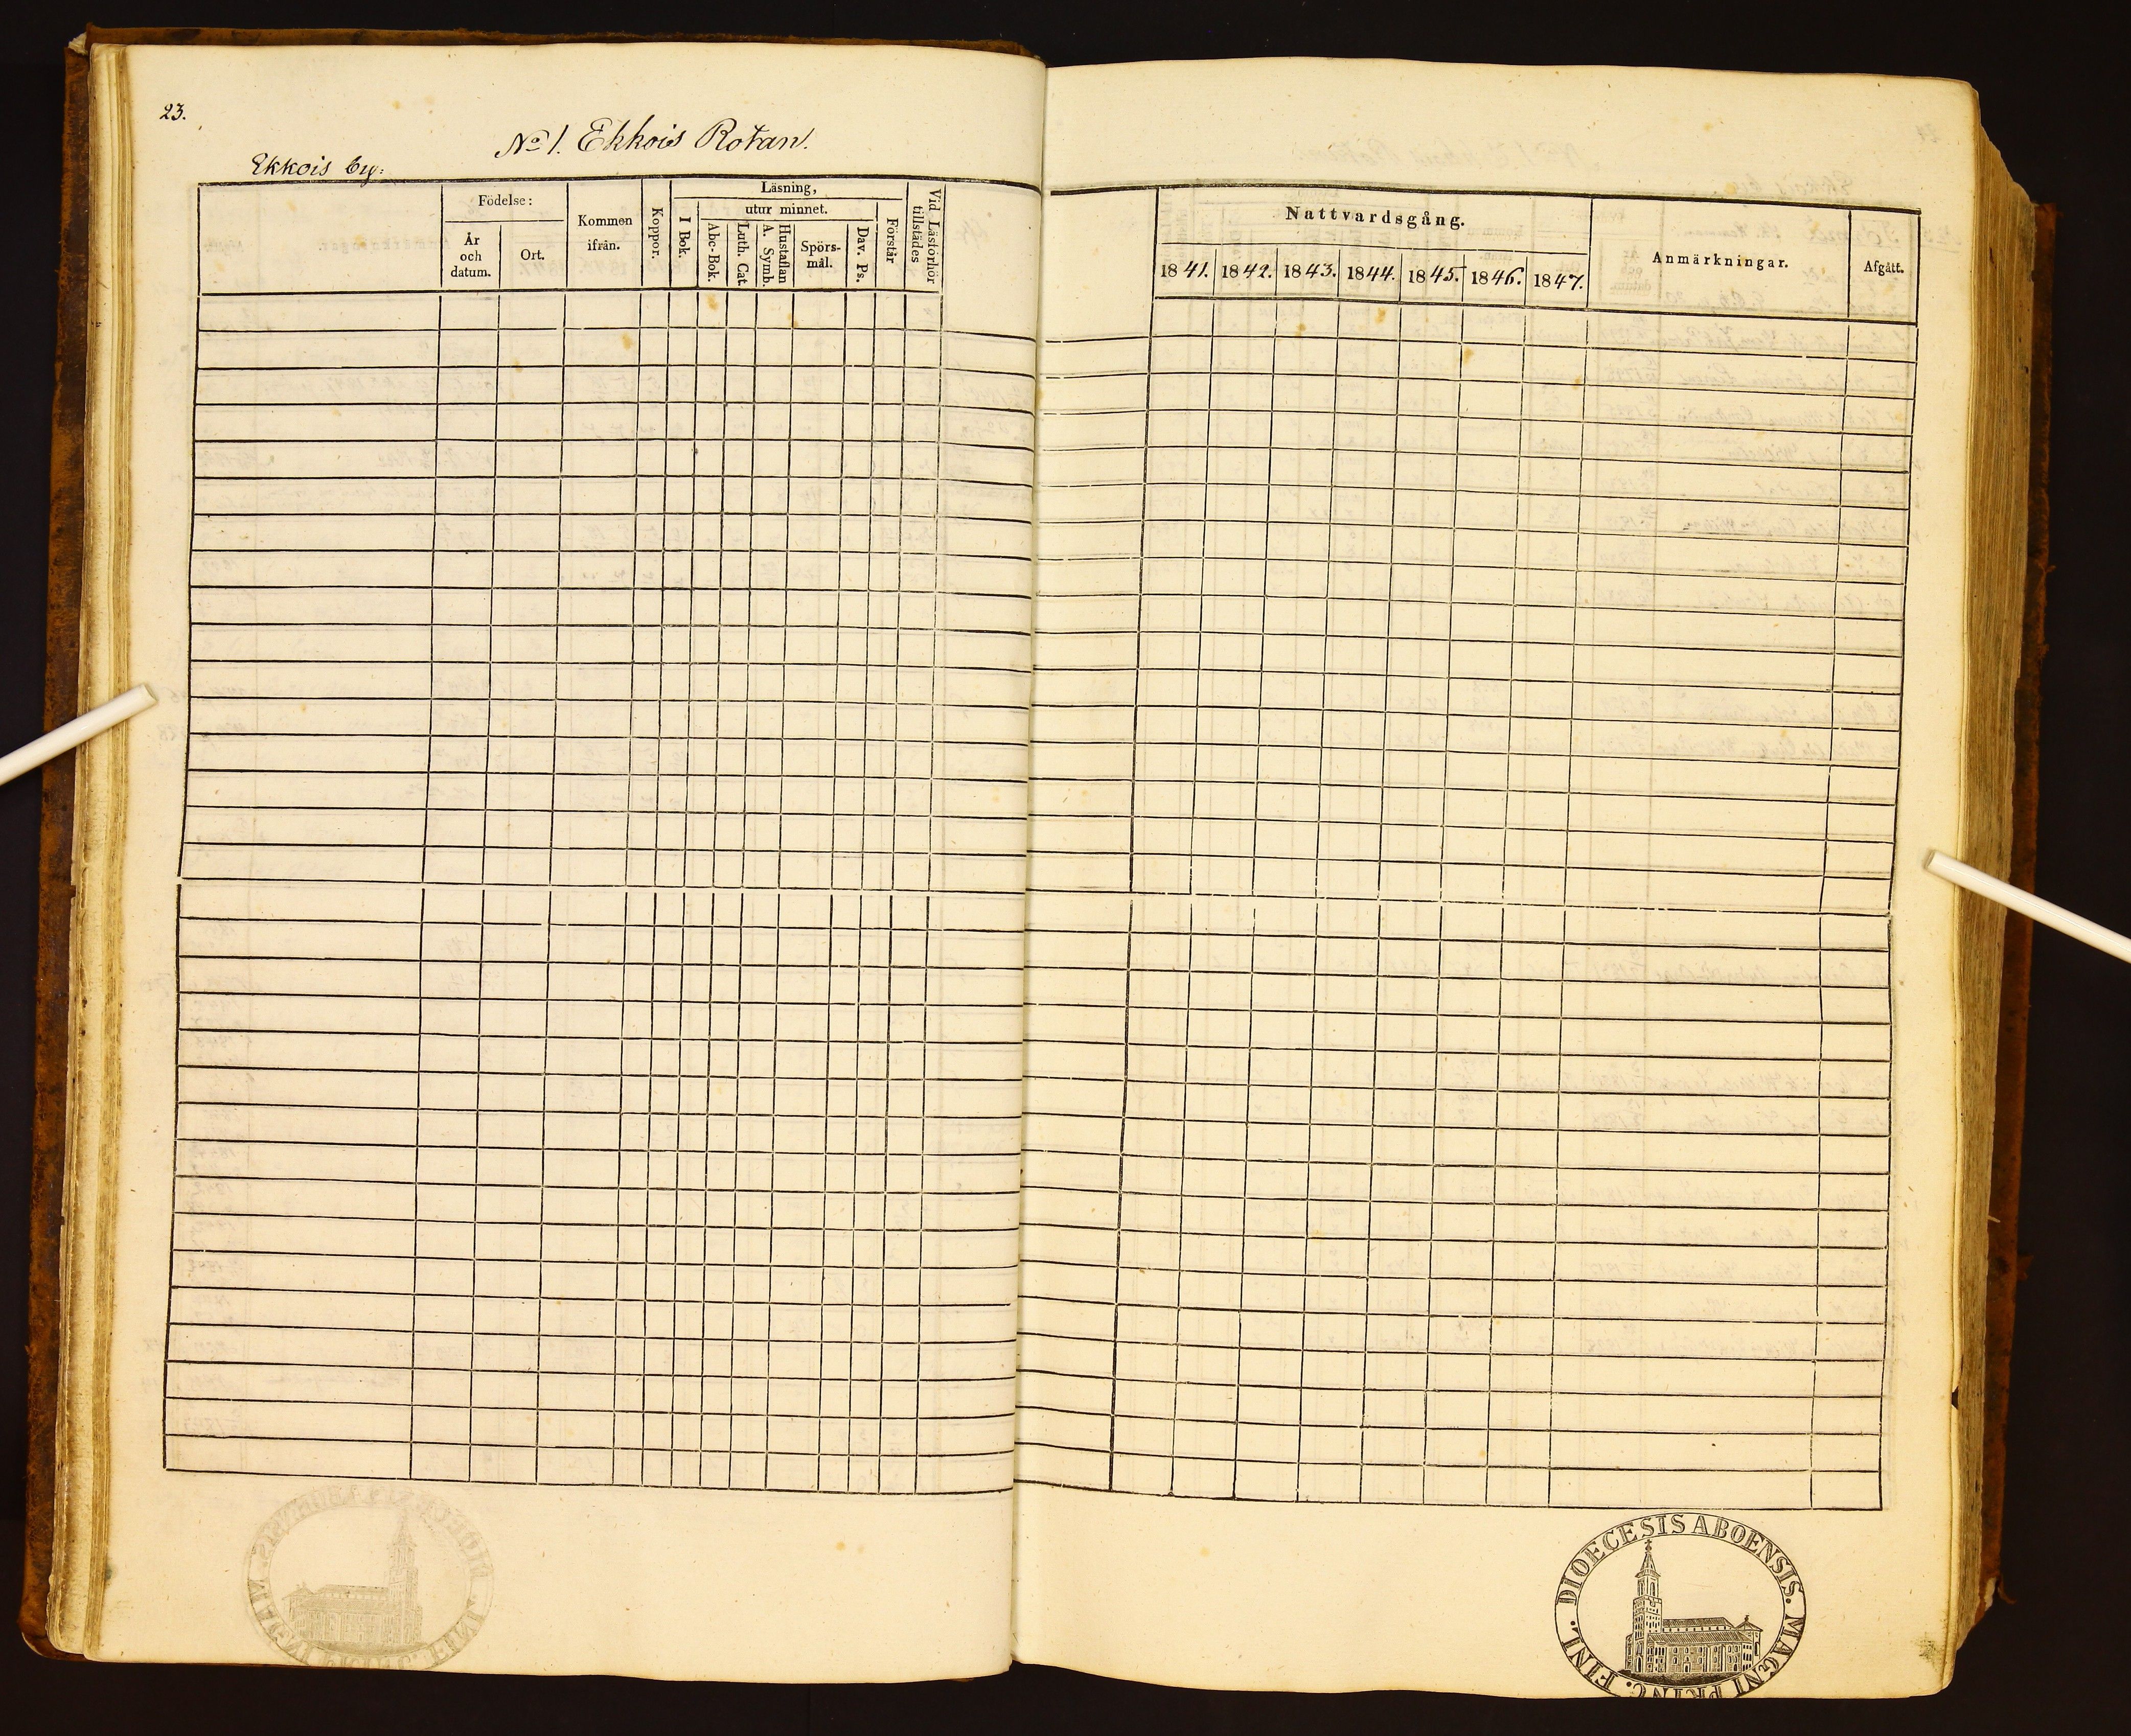 23.
No 1. Ekkois Rotan.
Ekkois by:
Födelse:
År och datum.
Ort.
Kommen ifrån.
Koppor.
Läsning,
I Bok.
utur minnet.
Abc-Bok.
Luth. Cat.
Hustaflan A. Symb.
Spörs-mål.
Dav. Ps.
Förstår
Vid Läsförhör tillstädes
Nattvardsgång.
1841. 1842. 1843. 1844. 1845. 1846. 1847.
Anmärkningar.
Afgått.
DIOECESIS ABOENSIS. MAGNI PRINC. FINL.